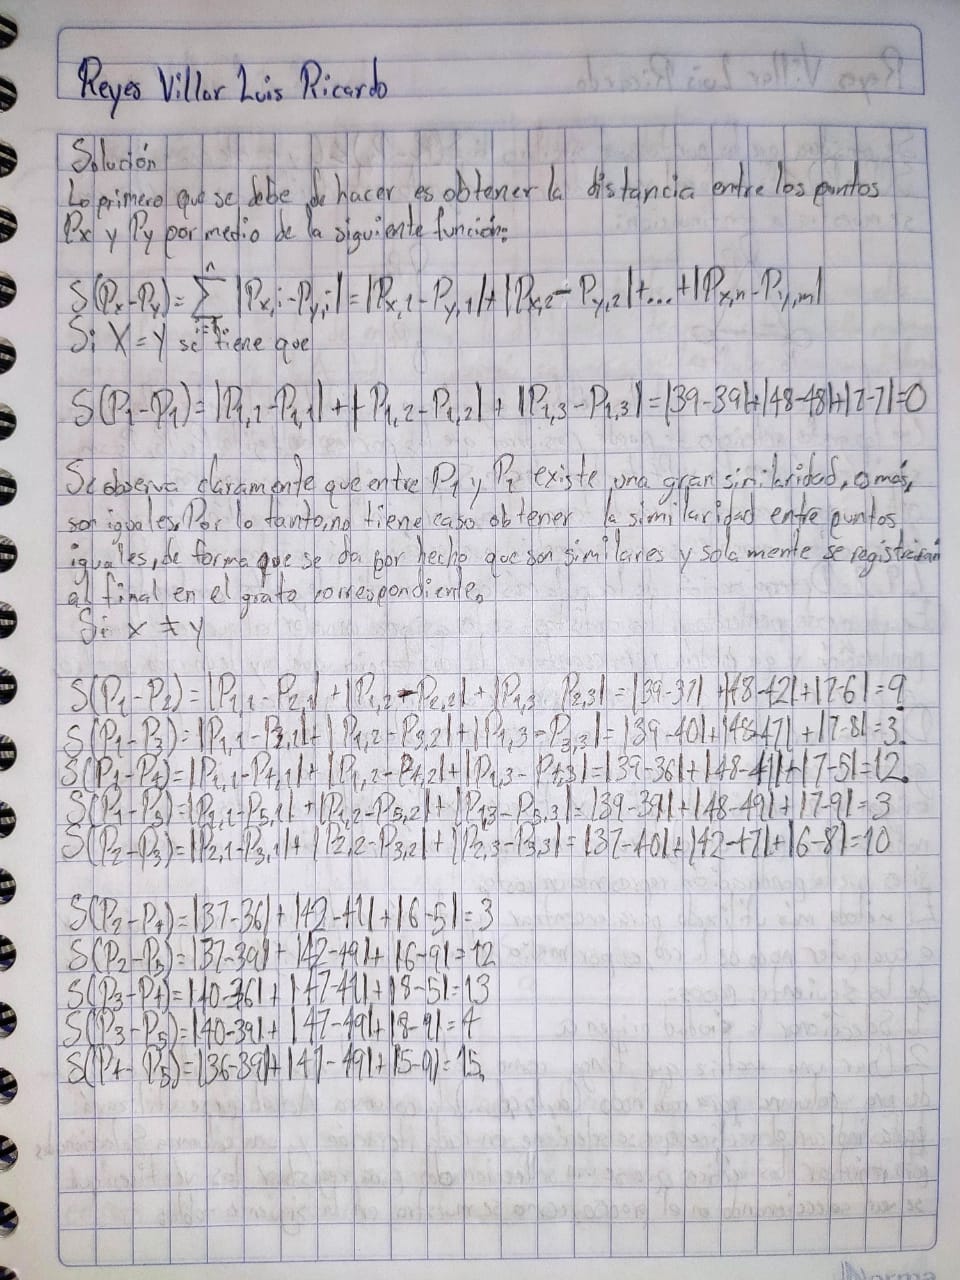 Reyes Villar Luis Ricardo
Solución
Lo primero que se debe de hacer es obtener la distancia entre los puntos
Px y Py por medio de la siguiente función:
S(Px-Py)= Σ |Px,i-Py,i| = |Px,1-Py,1|+|Px,2-Py,2|+...+|Px,n-Py,m|
Si X=Y se tiene que
S(P1-P1)= |P1,1-P1,1|+|P1,2-P1,2|+|P1,3-P1,3|=|39-39|+|48-48|+|7-7|=0
Se observa claramente que entre P1 y P1 existe una gran similaridad, es más,
son iguales. Por lo tanto, no tiene caso obtener la similaridad entre puntos
iguales, de forma que se da por hecho que son similares y solamente se registrarán
al final en el grafo correspondiente.
Si x ≠ y
S(P1-P2)=|P1,1-P2,1|+|P1,2-P2,2|+|P1,3 P2,3|=|39-37|+|48-42|+|7-6|=9.
S(P1-P3)=|P1,1-P3,1|+|P1,2-P3,2|+|P1,3-P3,3|=|39-40|+|48-47|+|7-8|=3.
S(P1-P4)=|P1,1-P4,1|+|P1,2-P4,2|+|P1,3-P4,3|=|39-36|+|48-41|+|7-5|=12.
S(P1-P5)=|P1,1-P5,1|+|P1,2-P5,2|+|P1,3-P5,3|=|39-39|+|48-49|+|7-9|=3
S(P2-P3)=|P2,1-P3,1|+|P2,2-P3,2|+|P2,3-P3,3|=|37-40|+|42-47|+|6-8|=10
S(P2-P4)=|37-36|+|42-41|+|6-5|=3
S(P2-P5)=|37-39|+|42-49|+|6-9|=12
S(P3-P4)=|40-36|+|47-41|+|8-5|=13
S(P3-P5)=|40-39|+|47-49|+|8-9|=4
S(P4-P5)=|36-39|+|41-49|+|5-9|=15.